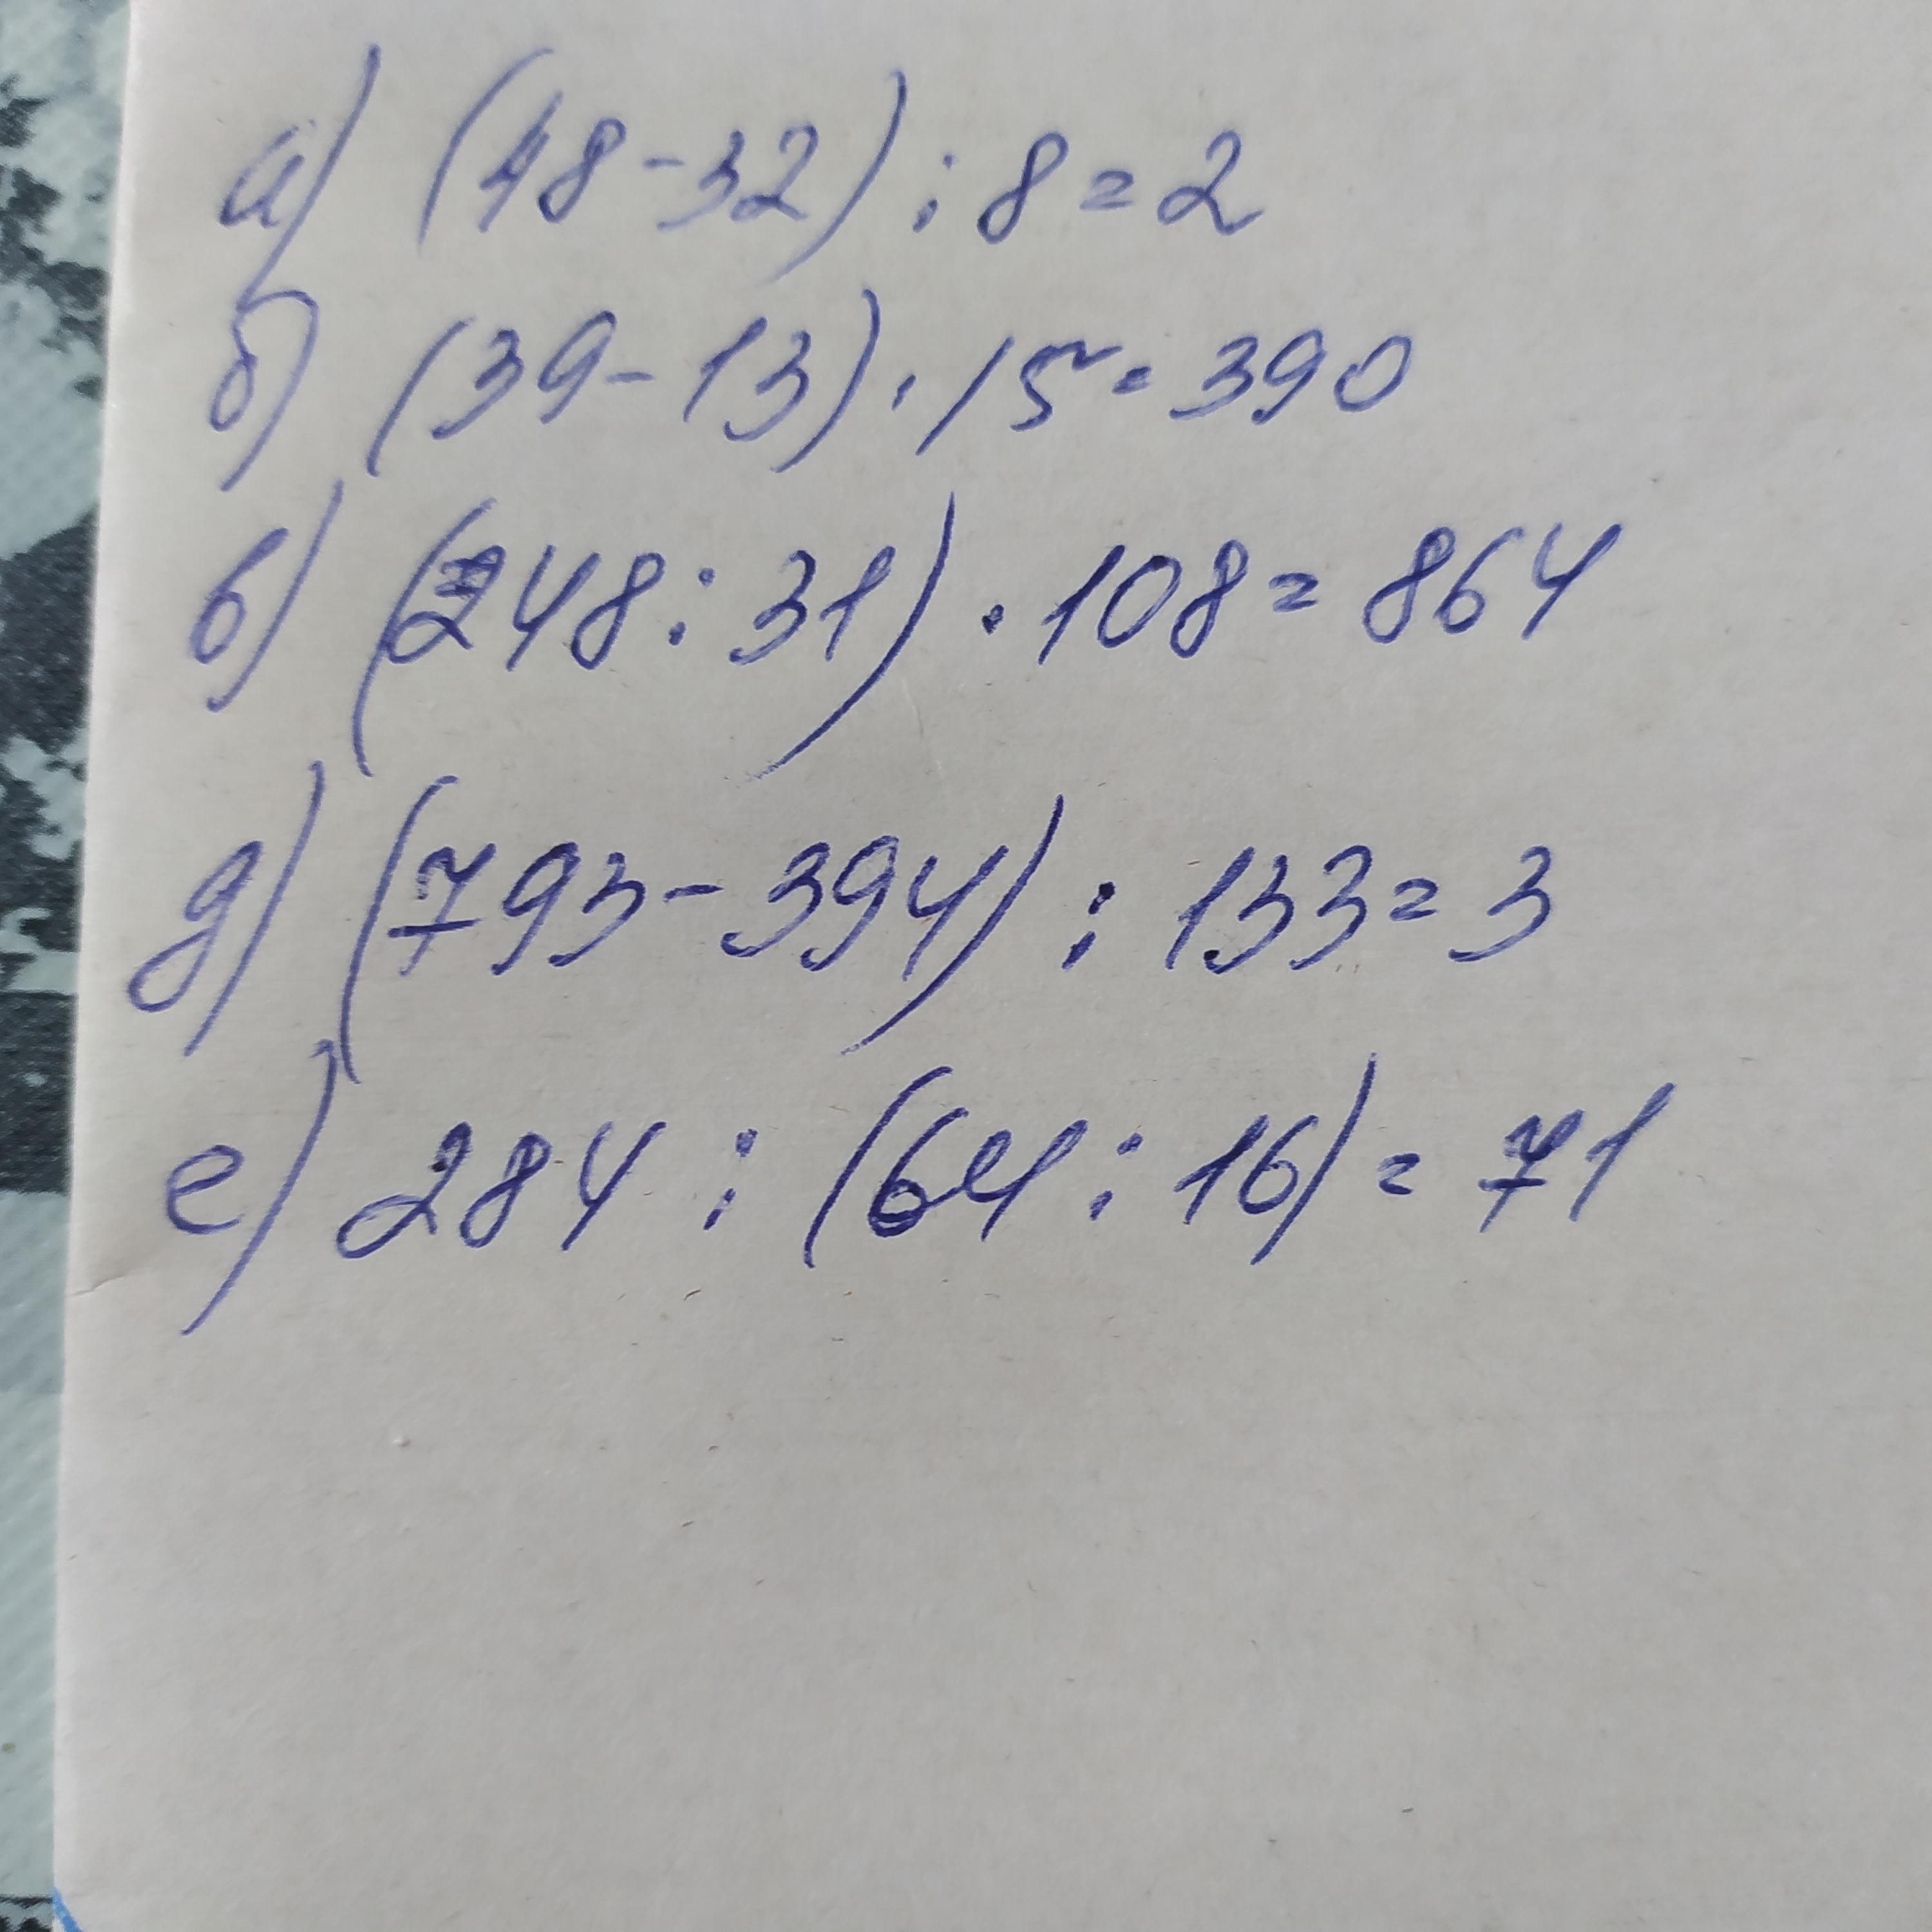 а) (48-32) : 8 = 2
б) (39-13) · 15 = 390
в) (248:31) · 108 = 864
д) (793-394) : 133 = 3
е) 284 : (64:16) = 71